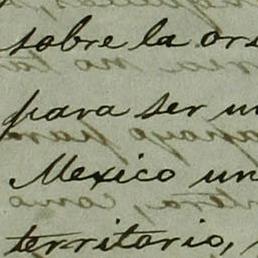 sobre la ors
para ser un
Mexico un
territorio,